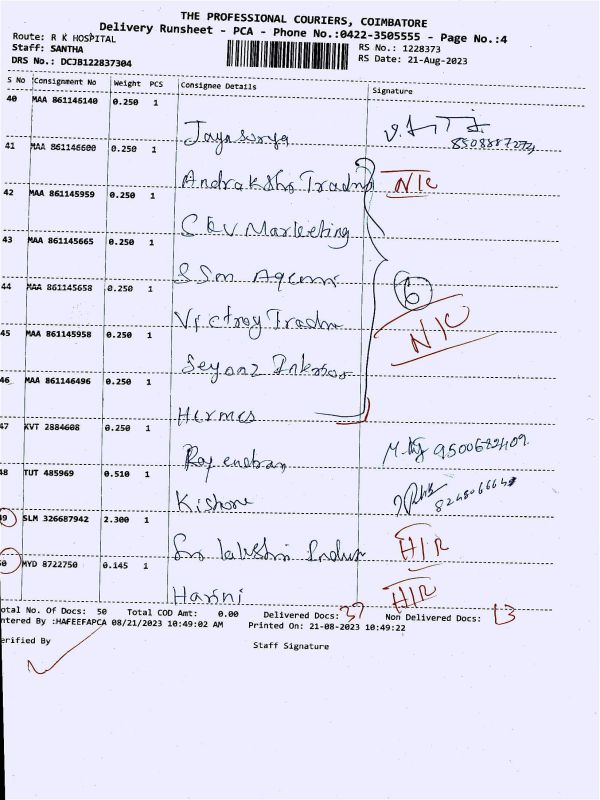 THE PROFESSIONAL COURIERS, COIMBATORE
Delivery Runsheet - PCA - Phone No.:0422-3505555 - Page No.:4
Route: R K HOSPITAL
RS No.: 1228373
Staff: SANTHA
RS Date: 21-Aug-2023
DRS No.: DCJB122837304
S No Consignment No Weight PCS Consignee Details Signature
40 MAA 861146140 0.250 1
Jayasurya
41 MAA 861146600 0.250 1
Traders N/C
42 MAA 861145959 0.250 1
SKV Marketing
43 MAA 861145665 0.250 1
SSm
44 MAA 861145658 0.250 1
6
Victroy
N/C
45 MAA 861145958 0.250 1
46 MAA 861146496 0.250 1
Hermes
47 KVT 2884608 0.250 1
48 TUT 485969 0.510 1
Kishore
49 SLM 326687942 2.300 1
Sri H/R
50 MYD 8722750 0.145 1
Harini H/R
otal No. Of Docs: 50 Total COD Amt: 0.00 Delivered Docs: 37 Non Delivered Docs: 13
ntered By :HAFEEFAPCA 08/21/2023 10:49:02 AM Printed On: 21-08-2023 10:49:22
erified By
Staff Signature